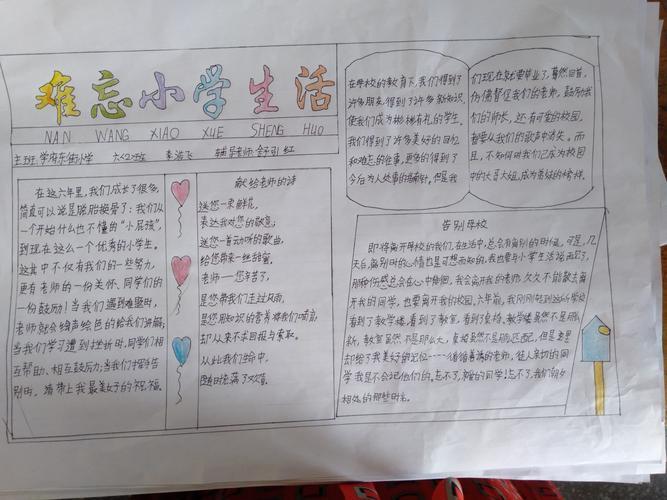 难忘小学生活
NAN WANG XIAO XUE SHENG HUO
主班:学府东街小学 六(2)班 辅导老师:舒引红
在这六年里,我们成长了很多,
简直可以说是脱胎换骨了:我们从
一个开始什么也不懂的“小屁孩”,
到现在这么一个优秀的小学生。
这其中不仅有我们的一些努力,
更有老师的一份关怀、同学们的
一份鼓励!当我们遇到难题时,
老师就会绘声绘色的给我们讲解;
当我们学习遭到挫折时,同学们相
互帮助、相互鼓励;当我们挥手告
别时,请带上我最美好的祝福。
献给老师的诗
送您一束鲜花,
表达我对您的敬意;
送您一首动听的歌曲,
给您带来一丝甜蜜。
老师——您辛苦了,
是您带我们走过风雨,
是您用知识的营养将我们哺育,
却从来不求回报与索取。
从此我们的心中,
随时充满了欢喜
在母校的教育下,我们得到了
许多朋友得到了许多新知识,
使我们成为彬彬有礼的学生。
我们得到了许多美好的回忆
和难忘的往事,更多的得到了
今后为人处事的指南针。但是我
们现在就要毕业了,蓦然回首,
仿佛督促我们的老师,鼓励我
们的师长,还有可爱的校园,
都要从我们的歌声中消失。而
且,不知何时我们已成为校园
中的大哥大姐,成为弟妹的榜样。
告别母校
即将离开母校的我们,在生活中,总会有离别的时候,可是,几
天后,离别时的心情也是可想而知的,我也要与小学生活说再见了,
那种伤感总会在心中徘徊,我会离开我的老师,久久不能散去离
开我的同学,也要离开我的校园,六年前,我刚刚转到这个学校
看到了教学楼,看到了教室,看到了桌椅,教学楼虽然不是那么
新,教室虽然不是那么大,桌椅虽然不是那么匹配,但是那里
却给了我美好的记忆——循循善诱的老师,佳人亲切的同
学我是不会忘记他们的。忘不了,我的同学!忘不了,我们朝夕
相处的那些时光。